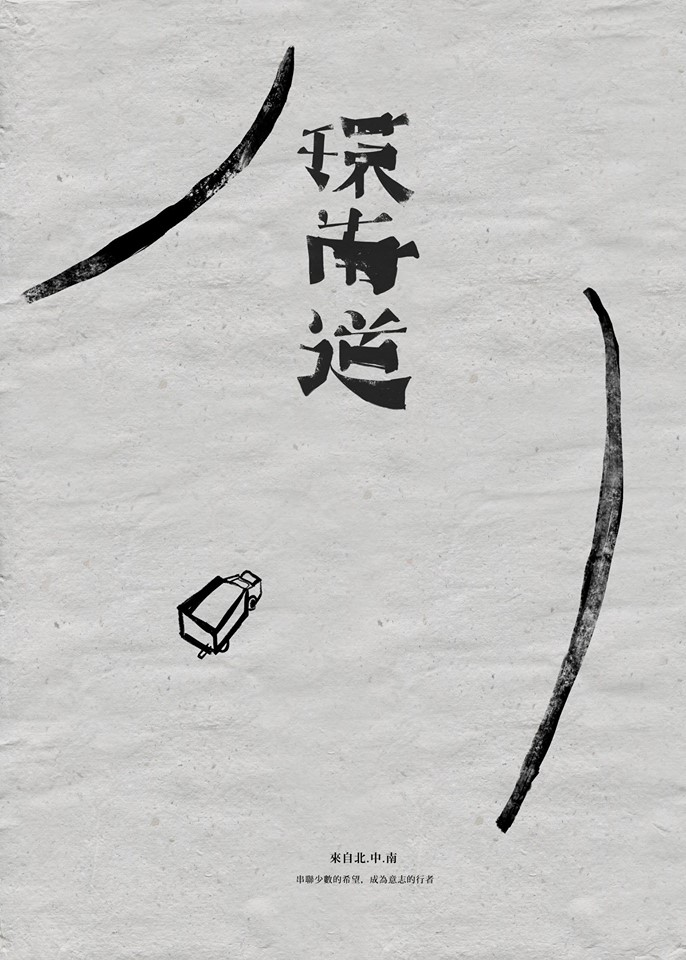 環南道
來自北.中.南
串聯少數的希望，成為意志的行者